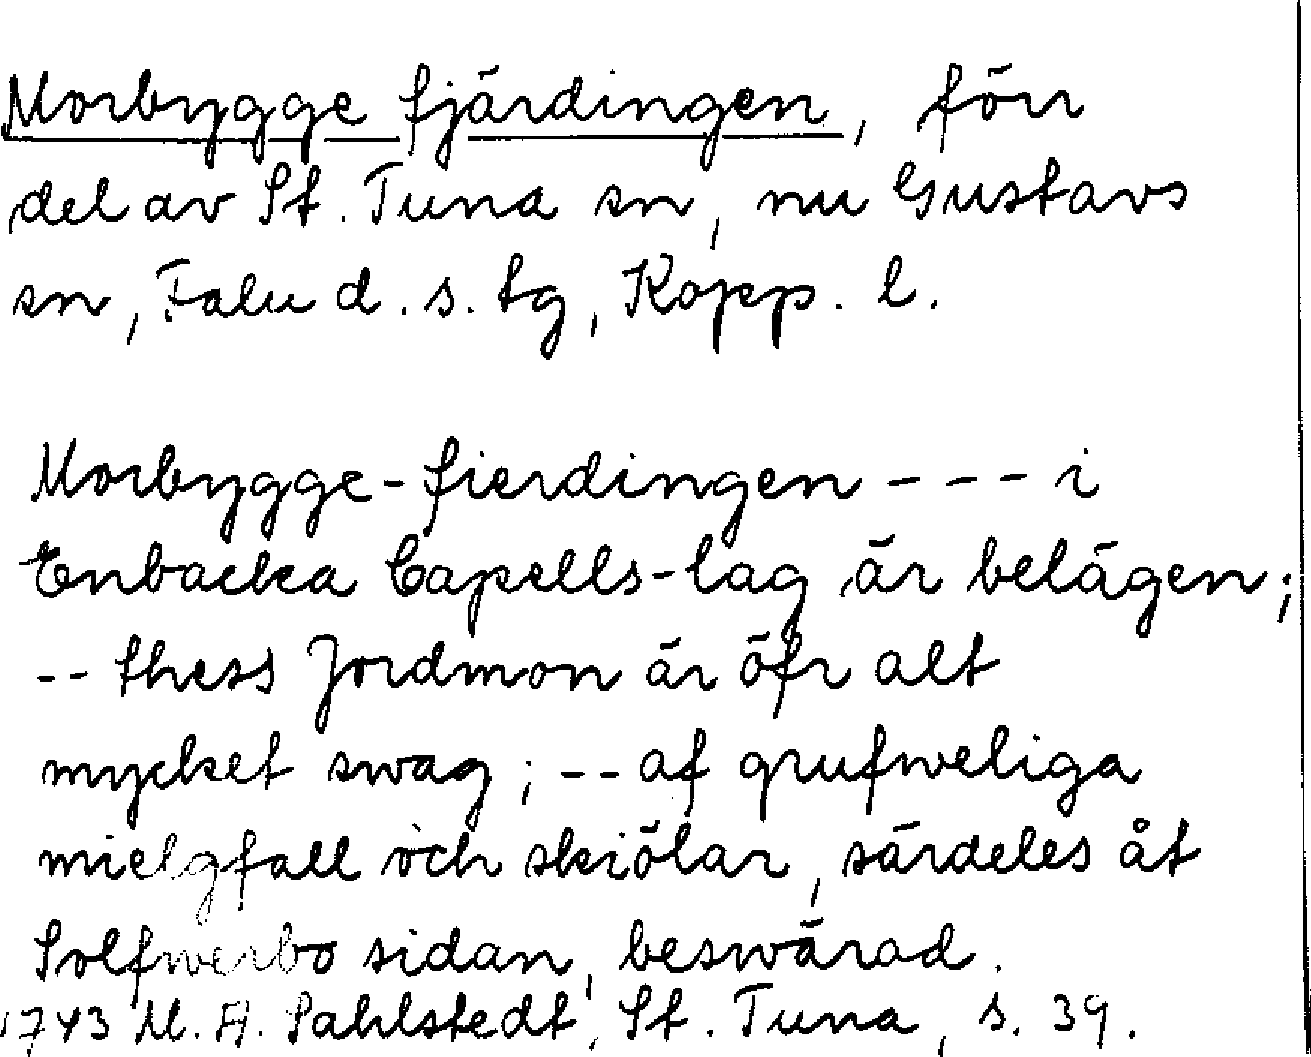 Morbygge fjärdingen, förr
del av St. Tuna sn, nu Gustavs
sn, Falu d. s. tg, Kopp. l.
Morbygge-fierdingen --- i
Enbacka Capells-lag är belägen;
-- thess Jordmon är öfr alt
mycket swag; -- af grufweliga
mielgfall och skiölar, särdeles åt
Solfwerbo sidan, beswärad.
1743 M. A. Sahlstedt, St. Tuna, s. 39.